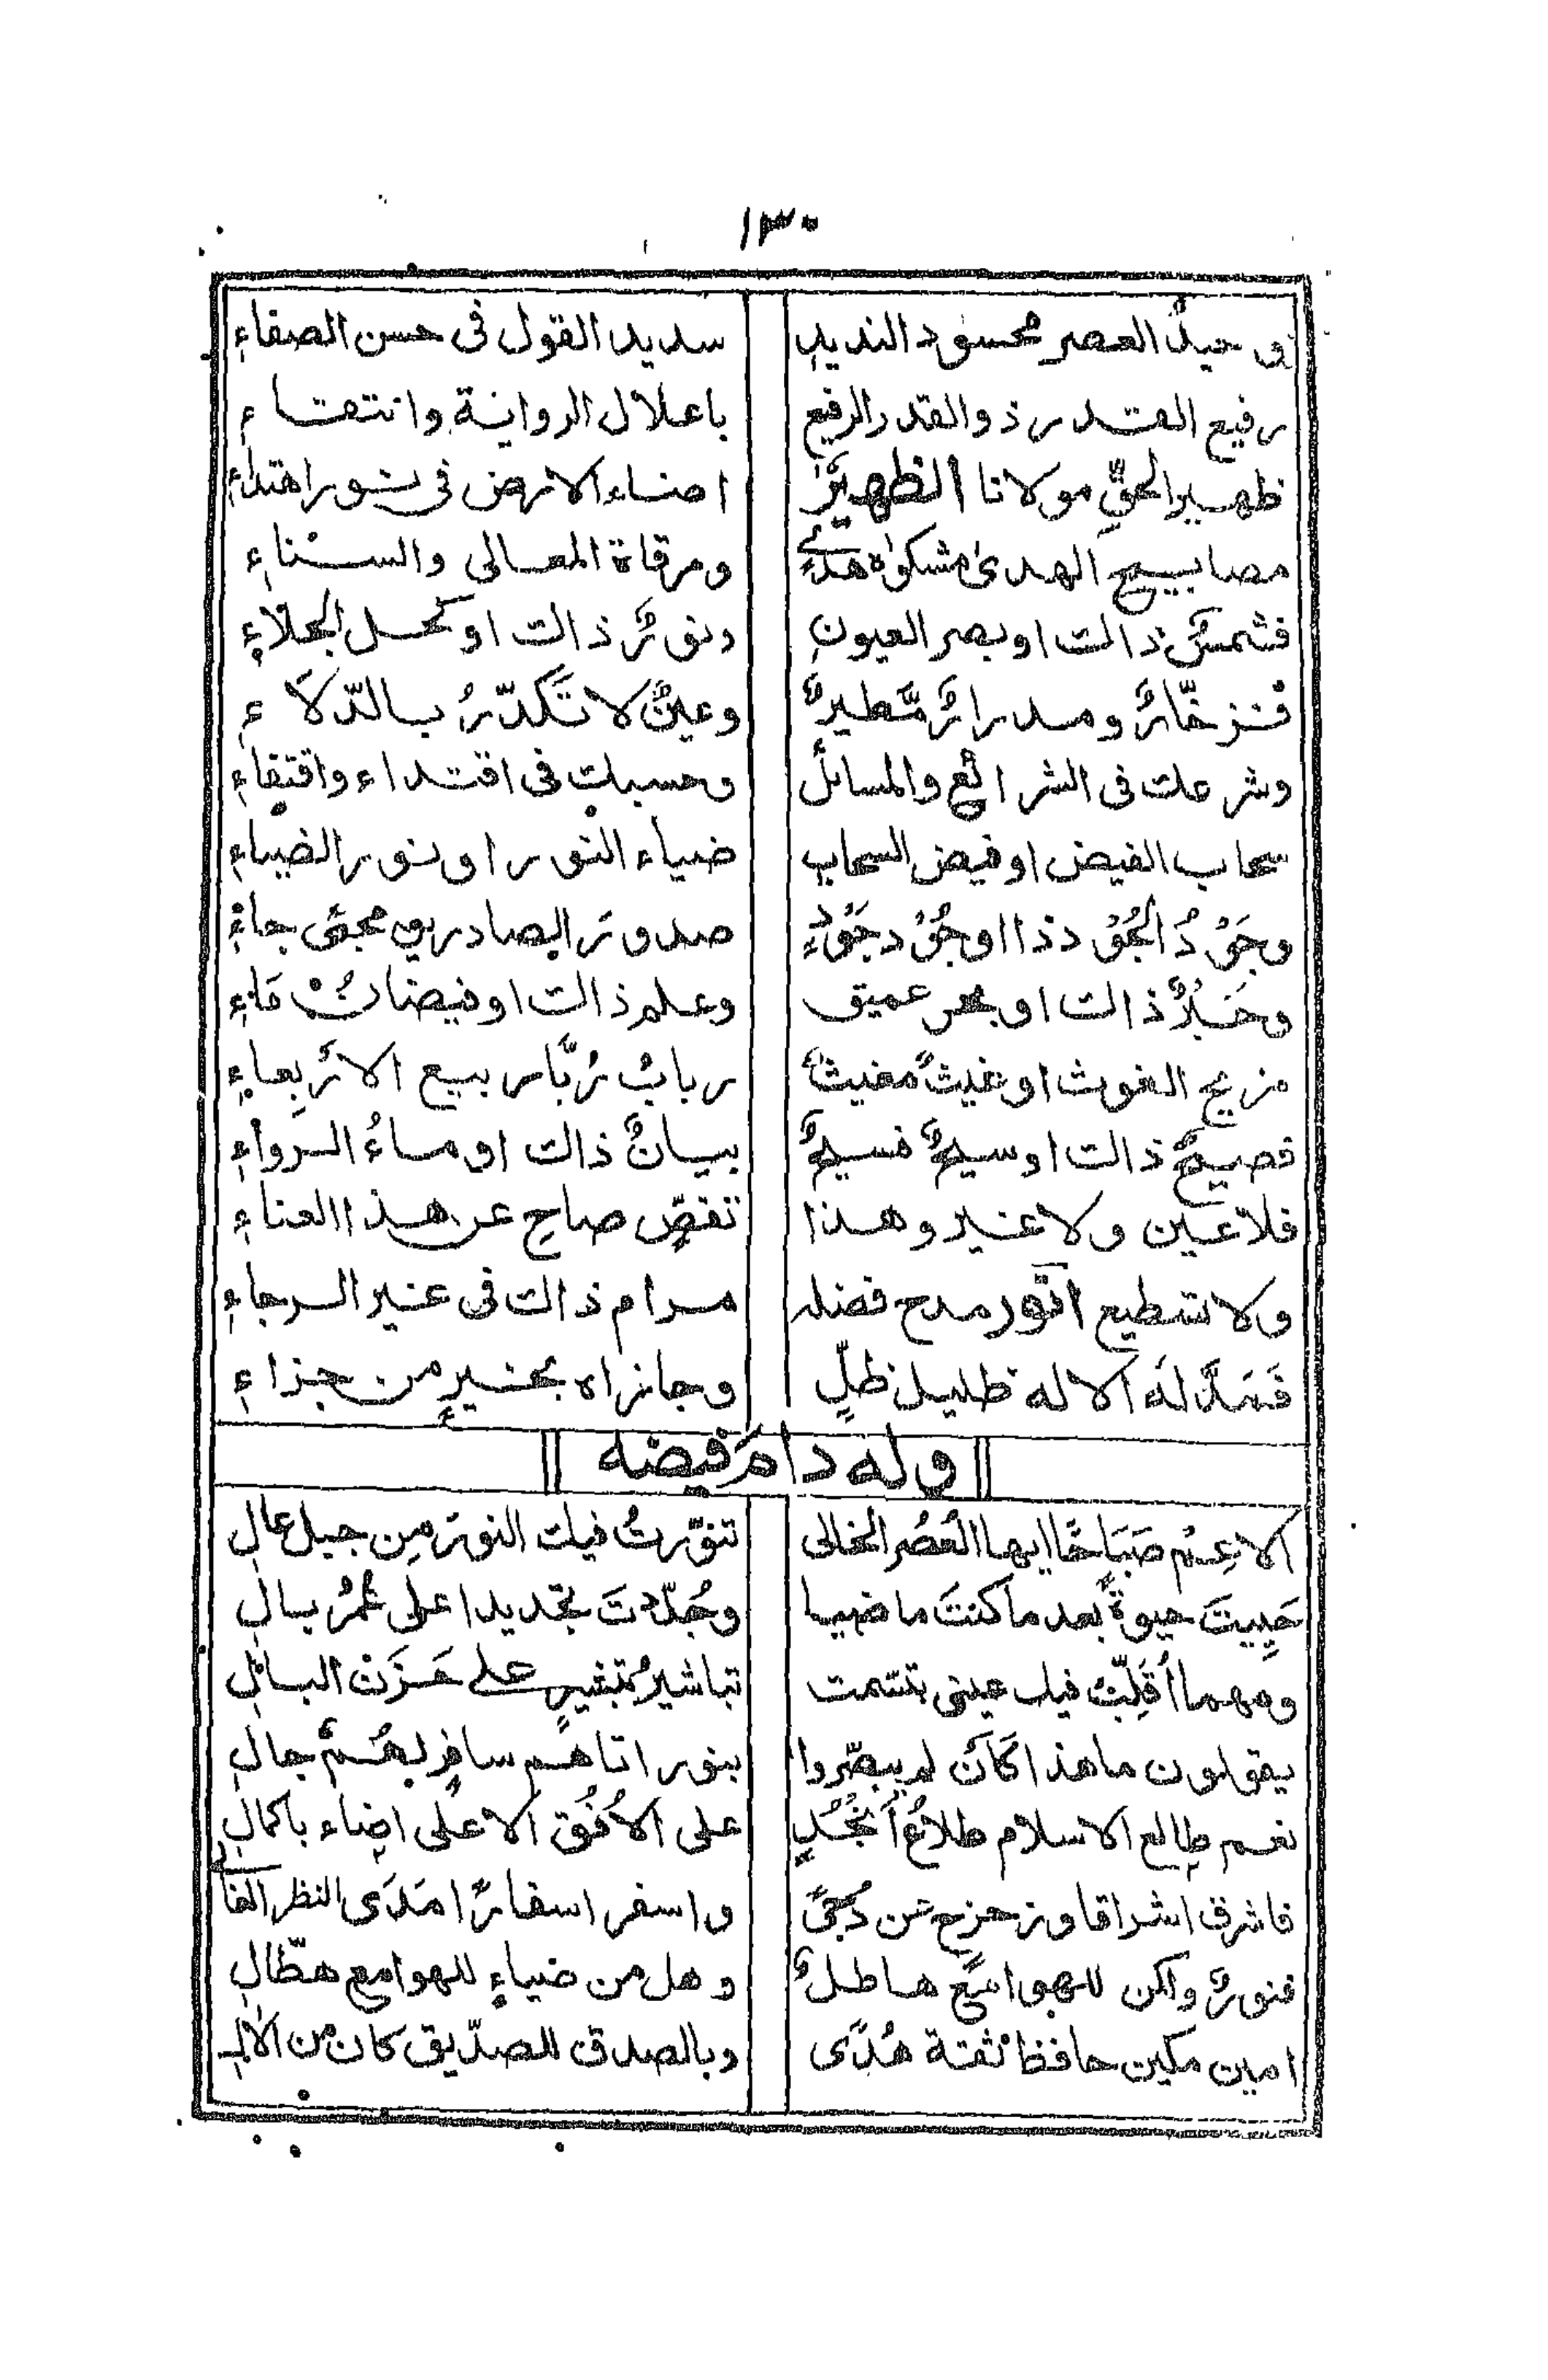 ١٣٠
وحيدُ العصر محسود النديدِ سديد القول فى حسن الصفاءِ
رفيع القدر ذو القدر الرفيع باعلال الرواية وانتقاءِ
ظهير الحقِّ مولانا الظهيرُ اضاء الارض فى نور اهتداءِ
مصابيح الهدىٰ مشكوٰة هدىً ومرقاة المعالى والسناءِ
فشمسٌ ذالك او بصر العيونِ ونورٌ ذالك او كحل الجلاءِ
فزخّارٌ ومدرارٌ مّطيرٌ وعينٌ لا تَكدّرُ بالدّلاَءِ
وشرعك فى الشرائع والمسائل وحسبك فى اقتداء واقتفاءِ
سحاب الفيض او فيض السحابِ ضياء النور او نور الضياءِ
وجَوْدُ الجُوْد ذا او جُوْد جَوْدٍ صدور الصادرين مجئ جاءٍ
وحَبرٌ ذالك او بحر عميق وعلم ذالك او فيضان مَاءِ
مزيح الغوث او غيثٌ مغيثٌ ربابُ رُبّا ربيع الاَربِعاءِ
فصيحٌ ذالك او سيحٌ فسيحٌ بيانٌ ذالك او ماءُ الرواءِ
فلا عين ولا غير وهذا تفصٍّ صاحِ عن هذا العناءِ
ولا تسطيع انور مدح فضله مرام ذالك فى غير الرجاءِ
فَمَدَّ لَه الاله ظليل ظلٍّ وجازاه بخيرٍ من جزاءِ
وله دام فيضه
الا عِمْ صَبَاحًا ايها العُصُر الخالى تنوّرتُ فيك النورَ مِن جبل عالِ
حَيِيتَ حيوةً بعد ما كنتَ ماضيا وجُدّدتَ تجديدا على عُمُرُ بالِ
ومهما اُقَلِّبْ فيك عينى تبسّمت تباشيرُ تبشيرٍ على حَزَن البالِ
يقولون ما هذا كَاَن لم يبصّروا بنور اتاهم سافرٍ لهُمُ جالِ
نعم طالع الاسلام طلاعُ اَنجُدٍ على الاُفُق الاعلى اضاء باكمالِ
فاشرق اشراقا وزحزح عن دُجىً واسفر اسفارًا مَدَى النظر الغالى
فنورٌ ولكن للهوامع هاطلٌ وهل من ضياءٍ للهوامع هطّالِ
امين مكين حافظ ثقة هُدًى وبالصدق للصدّيق كان من الاٰلِ